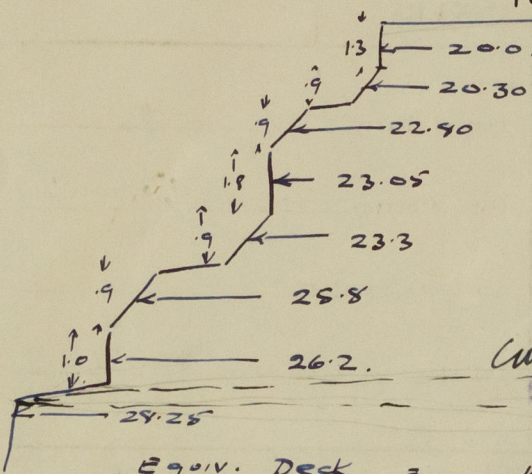 1.3
20.0
.9
20.30
.9
22.80
1.8
23.05
.9
23.3
.9
25.8
1.0
26.2.
28.25
Equiv. Deck =